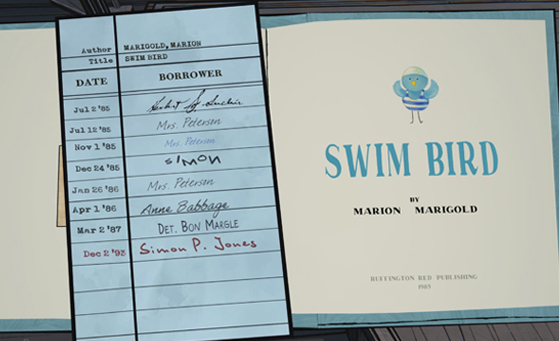 Author MARIGOLD, MARION
Title SWIM BIRD
DATE BORROWER
Jul 2 '85
Jul 12 '85 Mrs. Peterson
Nov 1 '85 Mrs. Peterson
Dec 24 '85 SIMON
Jan 26 '86 Mrs. Peterson
Apr 1 '86 Anne Babbage
Mar 2 '87 DET. BON MARGLE
Dec 2 '93 Simon P. Jones
SWIM BIRD
BY
MARION MARIGOLD
RUFFINGTON RED PUBLISHING